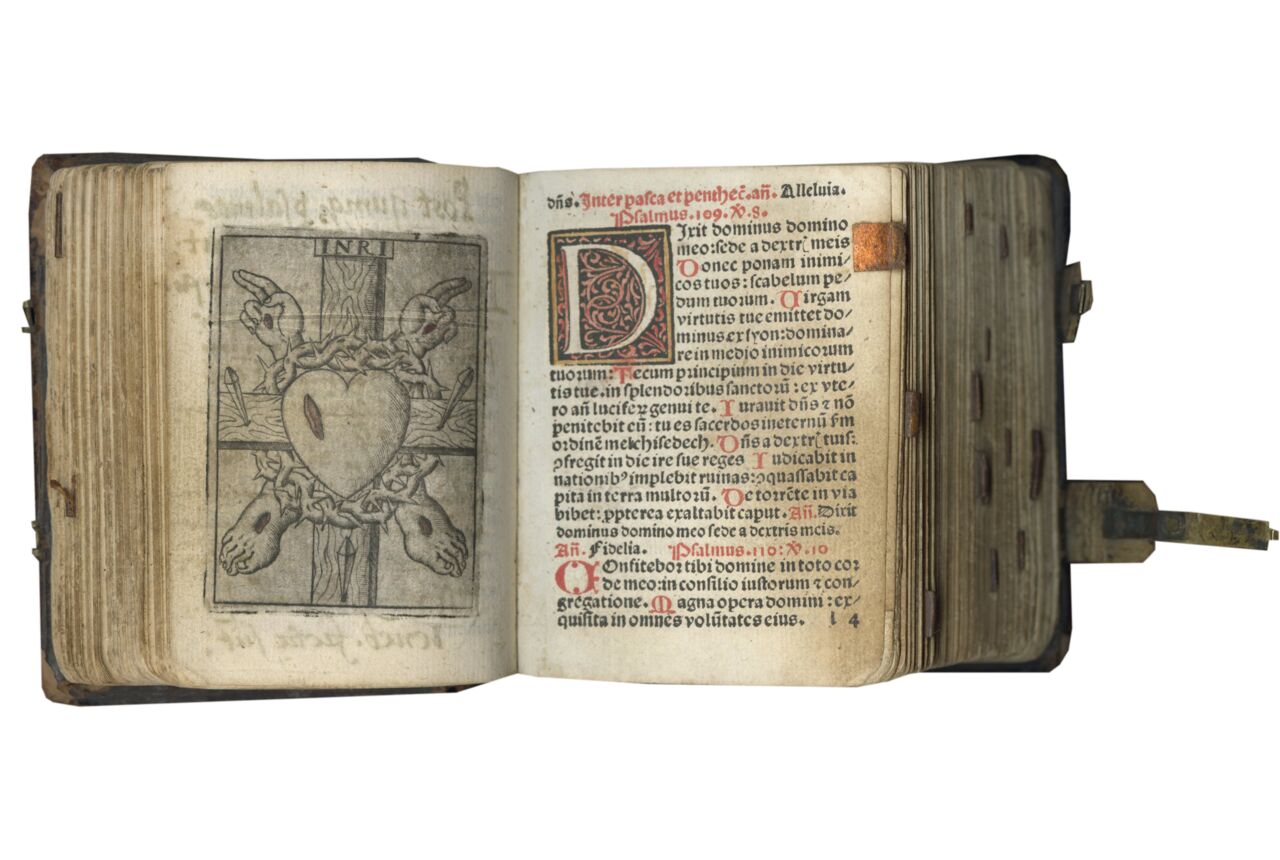 INRI
dñs. Inter pasca et penthec̃. añ. Alleluia.
Psalmus. 109. ꝟ. 8.
DIxit dominus domino
meo: sede a dextrꝭ meis
Donec ponam inimi/
cos tuos: scabelum pe/
dum tuorum. Virgam
virtutis tue emittet do/
minus ex syon: domina/
re in medio inimicorum
tuorum: Tecum principium in die virtu/
tis tue. in splendoribus sanctorũ: ex vte/
ro añ luciferꝝ genui te. Iurauit dñs ⁊ nõ
penitebit eũ: tu es sacerdos ineternũ ẞm
ordinẽ melchisedech. Dñs a dextrꝭ tuis:
ꝯfregit in die ire sue reges Iudicabit in
nationibꝰ implebit ruinas: ꝯquassabit ca
pita in terra multorũ. De torrẽte in via
bibet: ꝓpterea exaltabit caput. Añ. Dixit
dominus domino meo sede a dextris meis.
Añ. Fidelia. Psalmus. 110: ꝟ. 10
COnfitebor tibi domine in toto cor
de meo: in consilio iustorum ⁊ con/
gregatione. Magna opera domini: ex/
quisita in omnes volũtates eius. l 4